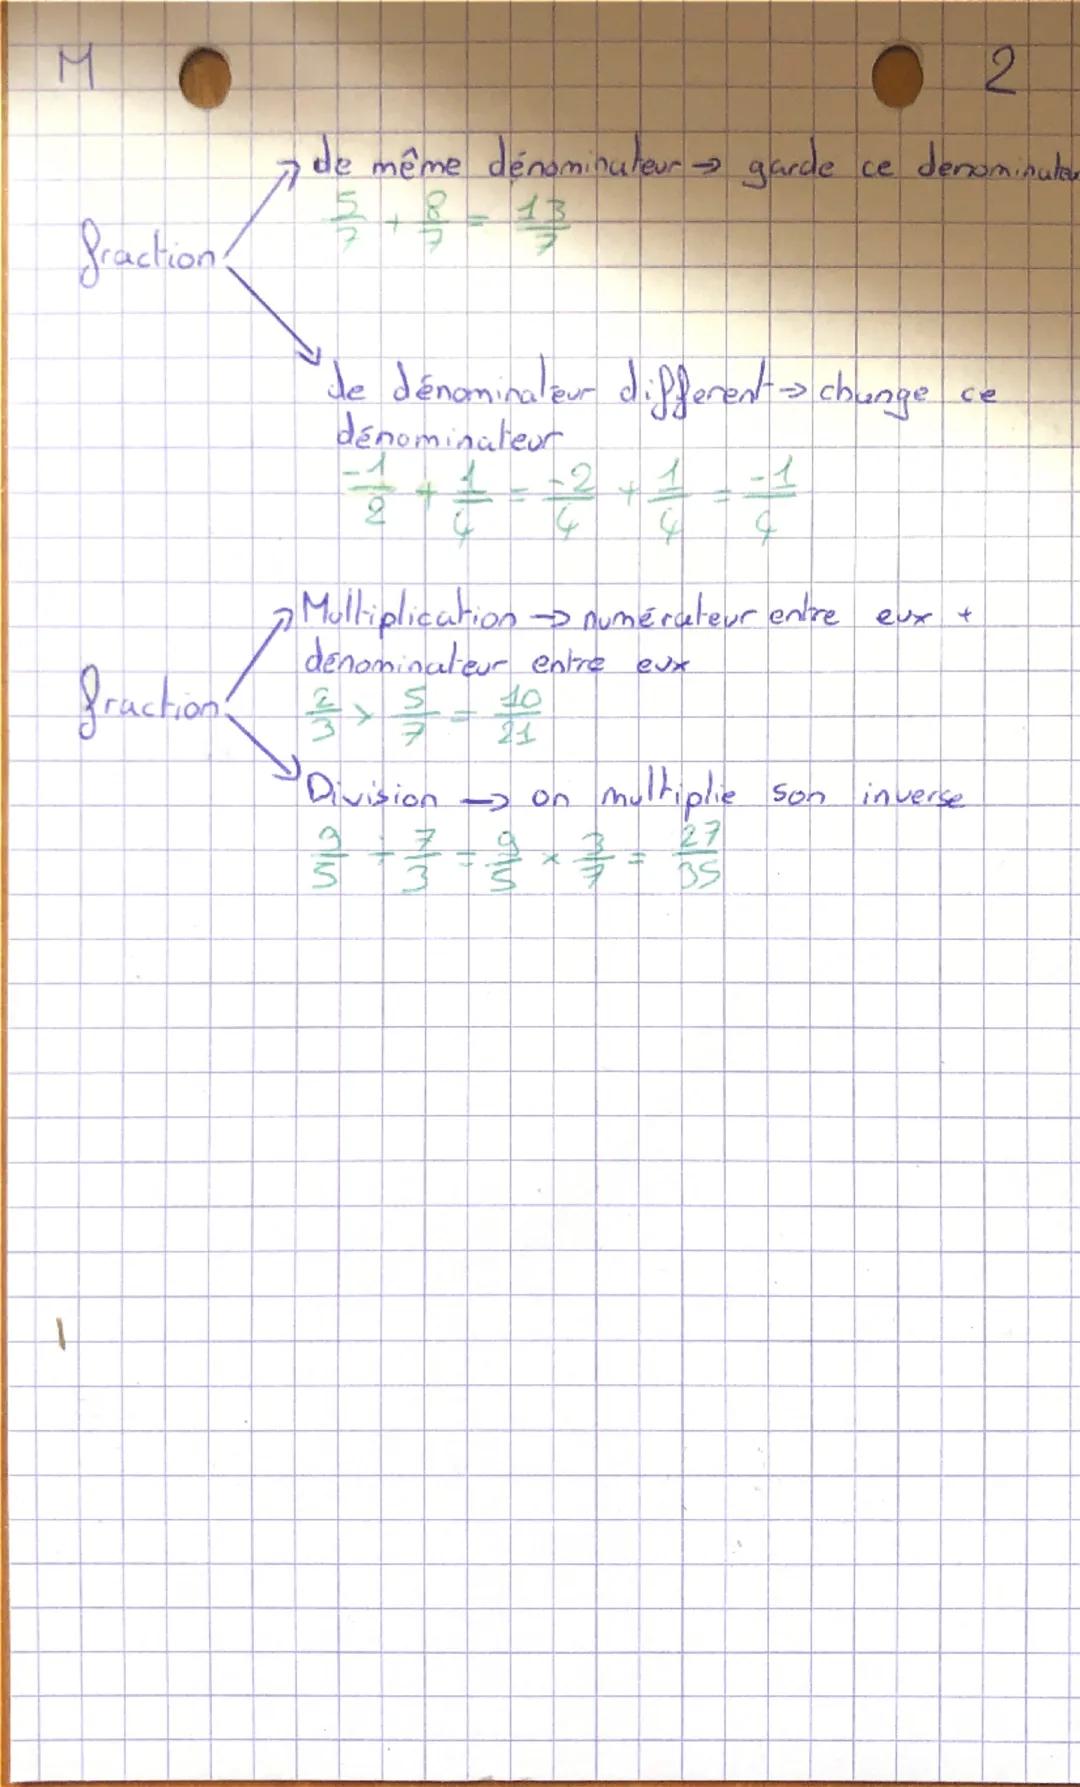 M 2
de même dénominateur → garde ce denominateur
5/7 + 8/7 = 13/7
fraction
de dénominateur different → change ce
dénominateur
-1/2 + 1/4 = -2/4 + 1/4 = -1/4
Multiplication → numérateur entre eux +
dénominateur entre eux
fraction
2/3 × 5/7 = 10/21
Division → on multiplie son inverse
9/5 ÷ 7/3 = 9/5 × 3/7 = 27/35